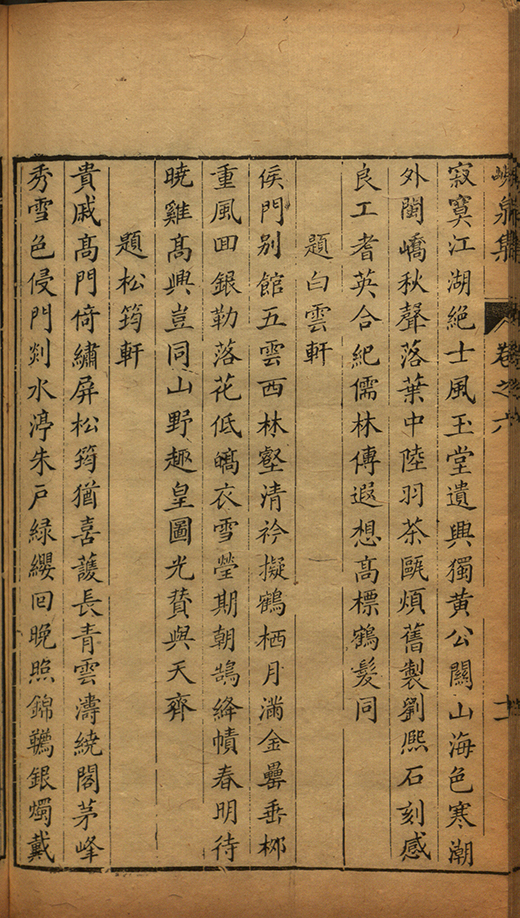 泉集 卷之六 十一
寂寞江湖絶士風玉堂遺興獨黄公關山海色寒潮
外閩嶠秋聲落葉中陸羽茶甌煩舊製劉熈石刻感
良工耆英合紀儒林傳遐想高標鶴髮同
題白雲軒
侯門别館五雲西林壑清衿擬鶴栖月滿金罍垂栁
重風回銀勒落花低皜衣雪瑩期朝鵠絳幘春明待
曉雞高興豈同山野趣皇圖光賛與天齊
題松筠軒
貴戚高門倚繡屏松筠猶喜䕶長青雲濤繞閣茅峰
秀雪色侵門剡水渟朱戸緑纓回晚照錦韉銀燭戴